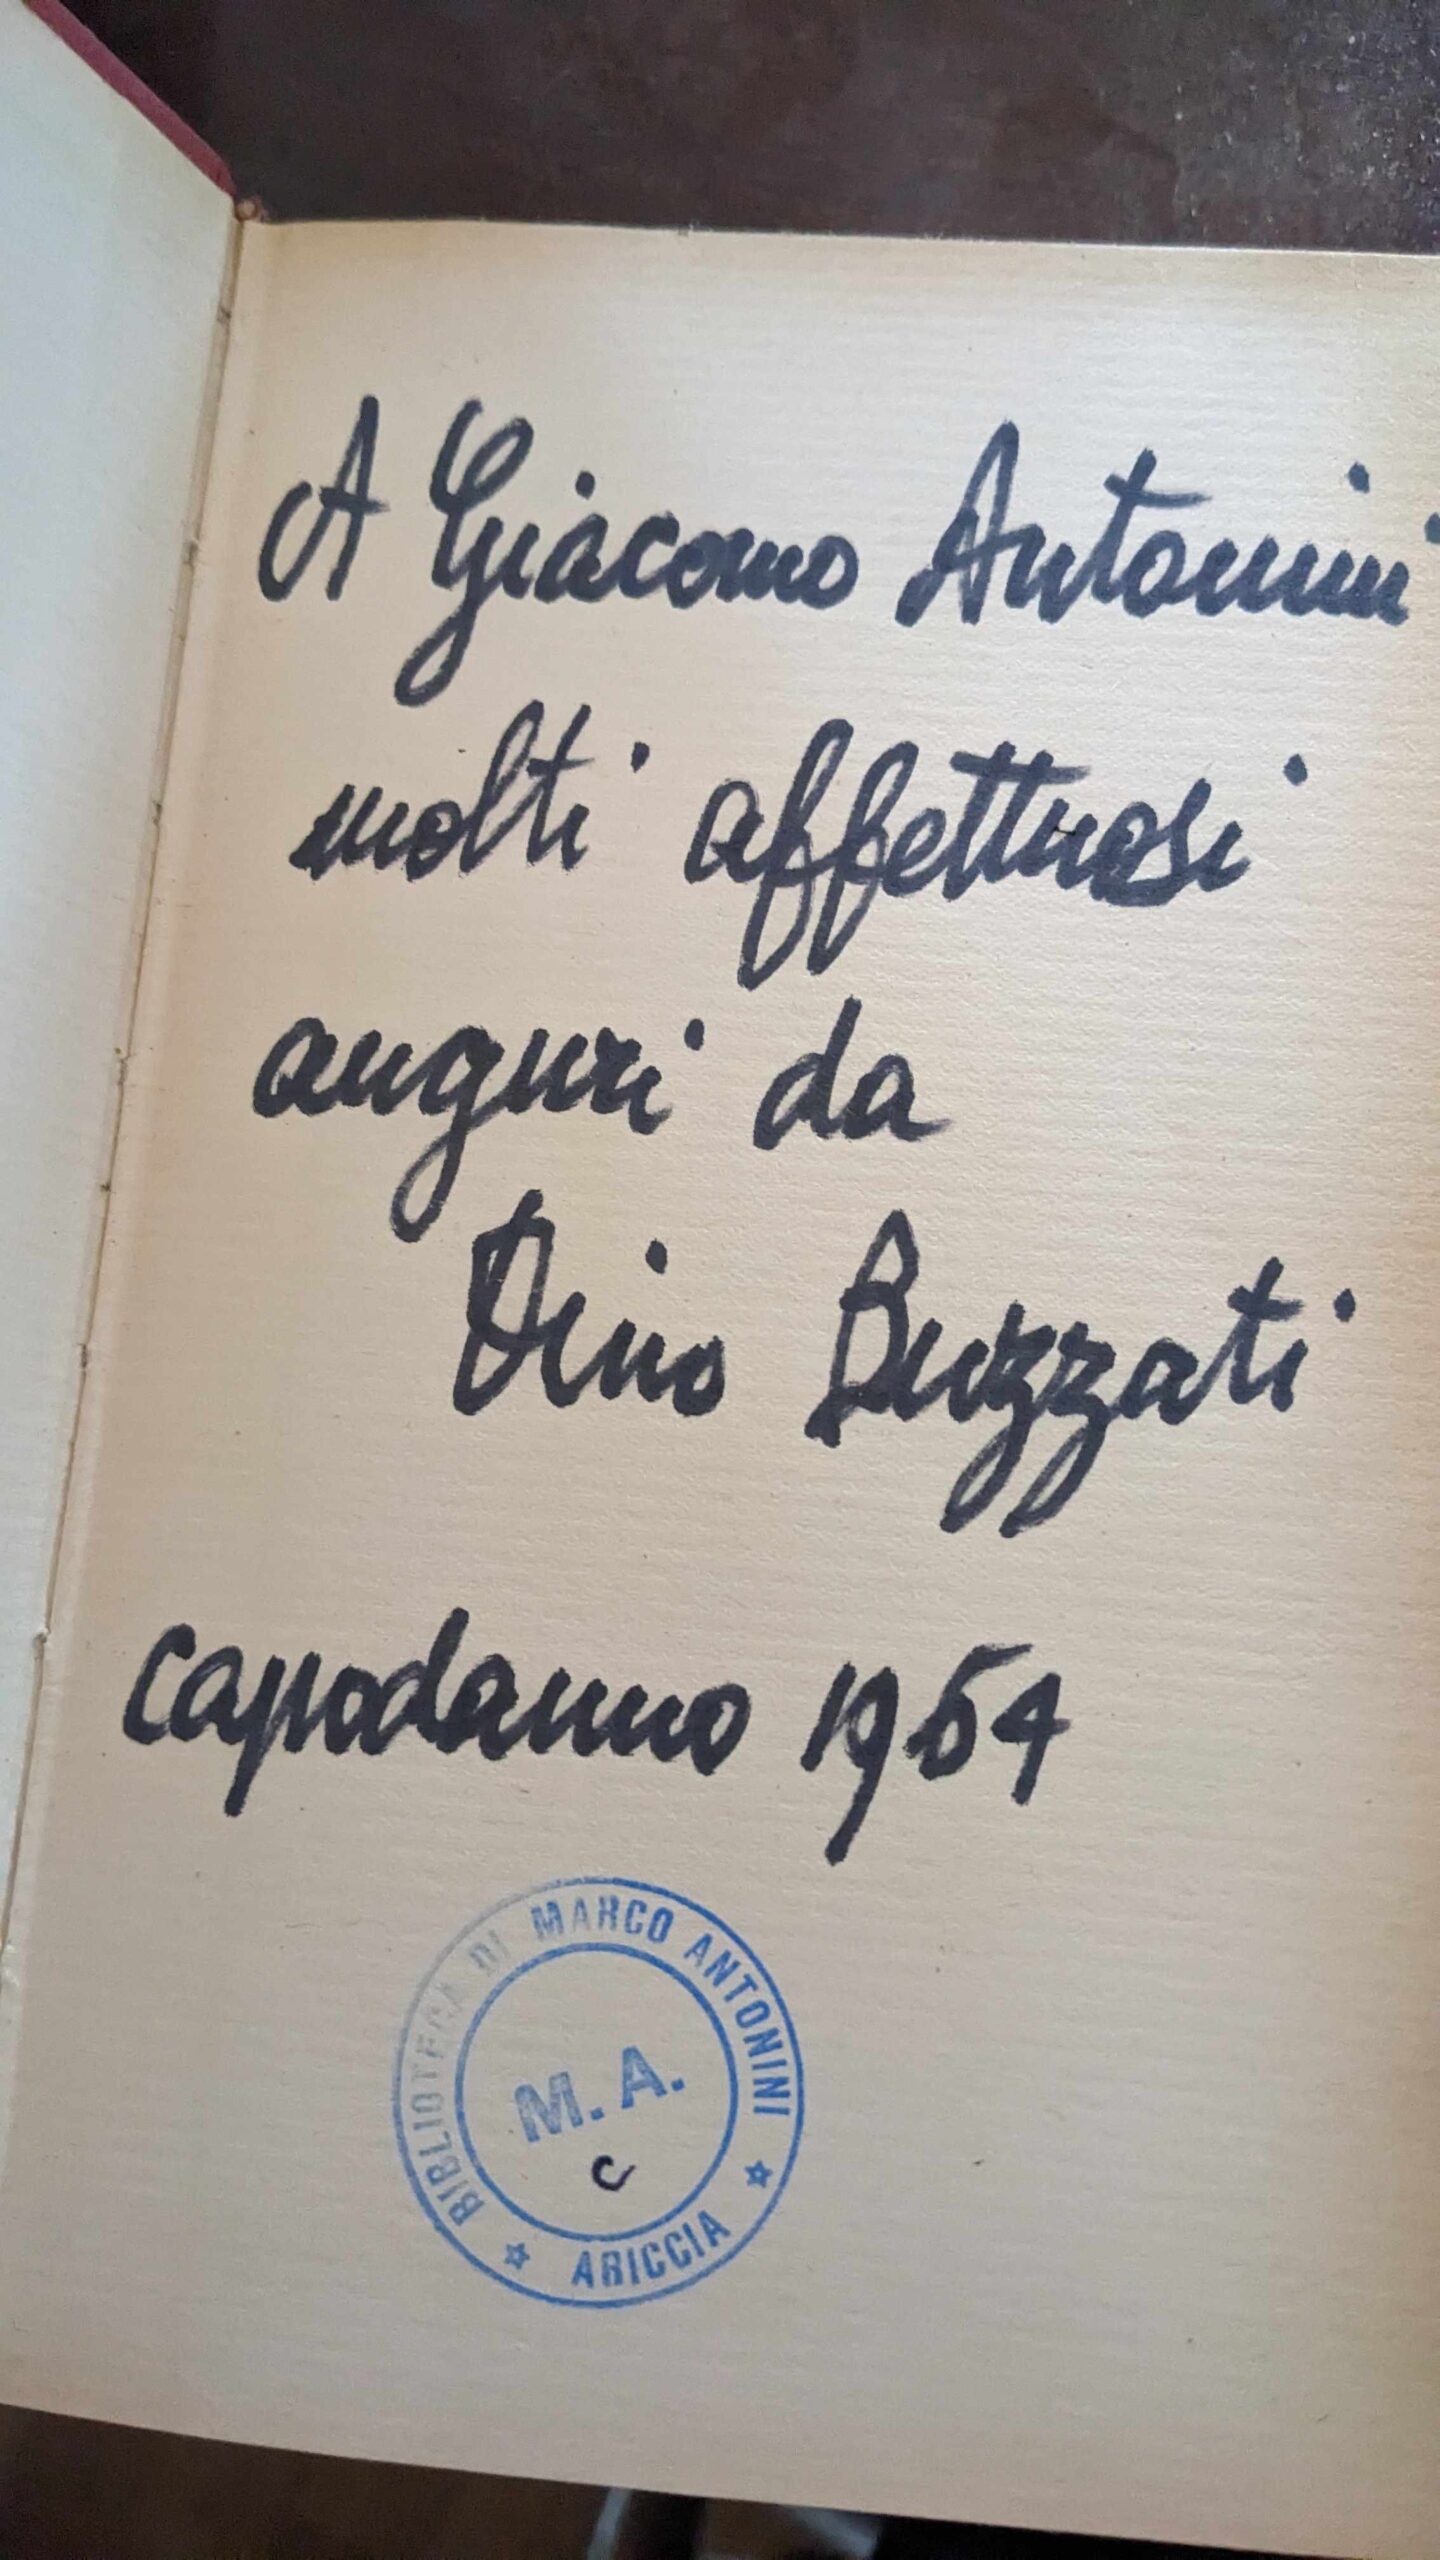 A Giacomo Antonini
molti affettuosi
auguri da
Dino Buzzati
capodanno 1964
BIBLIOTECA DI MARCO ANTONINI
M. A.
C
ARICCIA